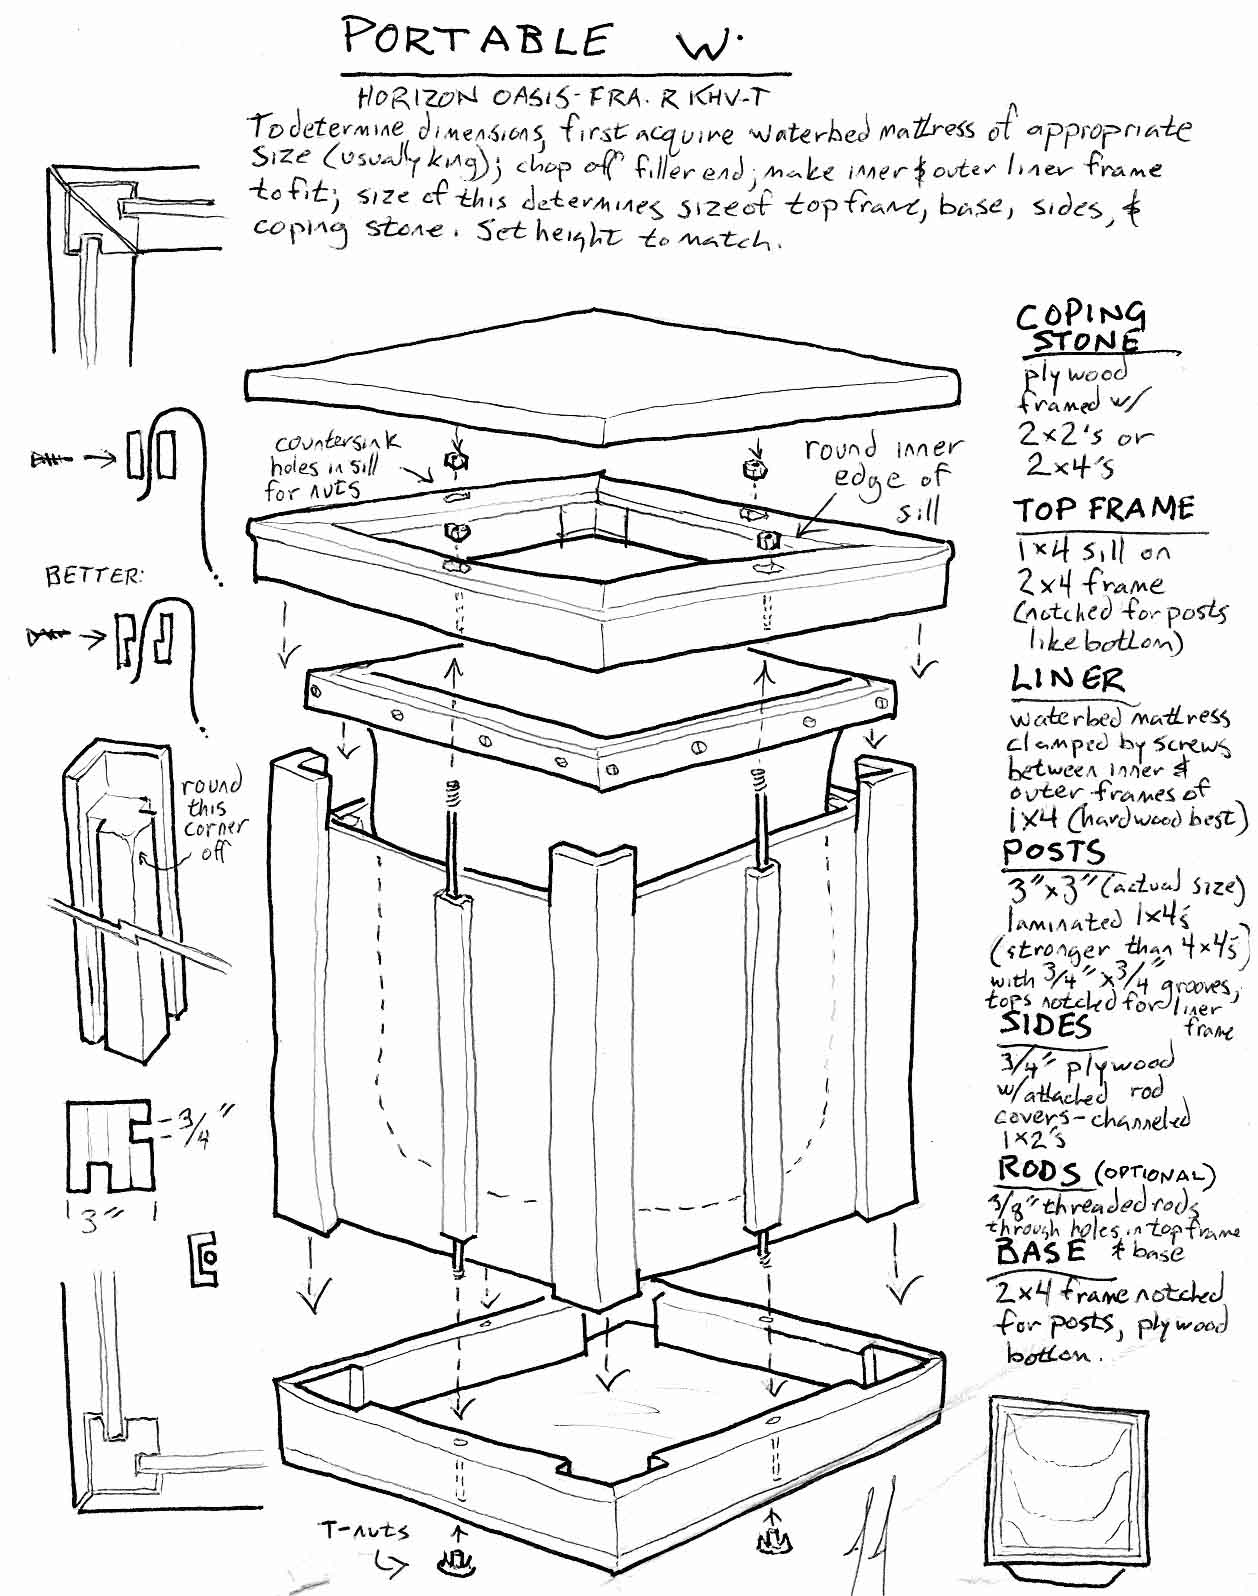 PORTABLE W.
HORIZON OASIS-FRA. R KHV-T
To determine dimensions, first acquire waterbed mattress of appropriate
size (usually king); chop off filler end; make inner & outer liner frame
to fit; size of this determines size of top frame, base, sides, &
coping stone. Set height to match.
countersink
holes in sill
for nuts
round inner
edge of
sill
BETTER:
round
this
corner
off
3/4"
3"
T-nuts
COPING
STONE
plywood
framed w/
2x2's or
2x4's
TOP FRAME
1x4 sill on
2x4 frame
(notched for posts
like bottom)
LINER
waterbed mattress
clamped by screws
between inner &
outer frames of
1x4 (hardwood best)
POSTS
3"x3" (actual size)
laminated 1x4's
(stronger than 4x4's)
with 3/4"x3/4" grooves,
tops notched for liner
frame
SIDES
3/4" plywood
w/attached rod
covers-channeled
1x2's
RODS (OPTIONAL)
3/8" threaded rods
through holes in top frame
& base
BASE
2x4 frame notched
for posts, plywood
bottom.